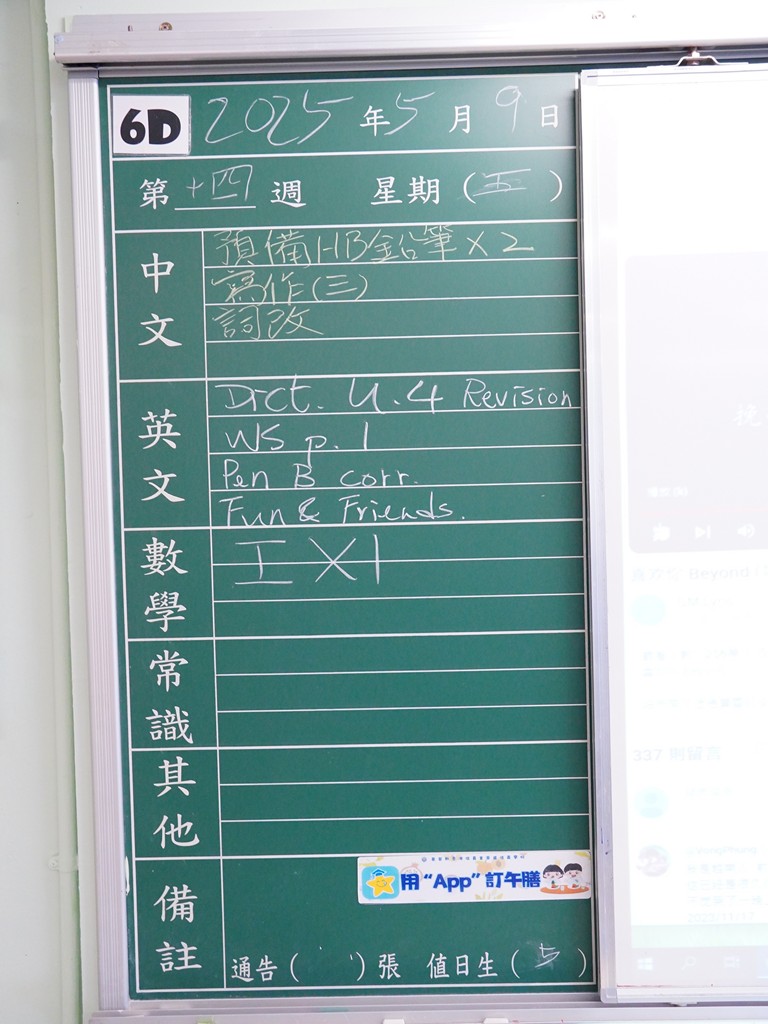 6D 2025年5月9日
第十四週 星期(五)
中文
預備HB鉛筆X2
寫作(三)
詞改
英文
Dict. U.4 Revision
WS p.1
Pen B corr.
Fun & Friends.
數學
工X1
常識
其他
備註
用“App”訂午膳
通告( )張 值日生(5)
Beyond
337 則留言